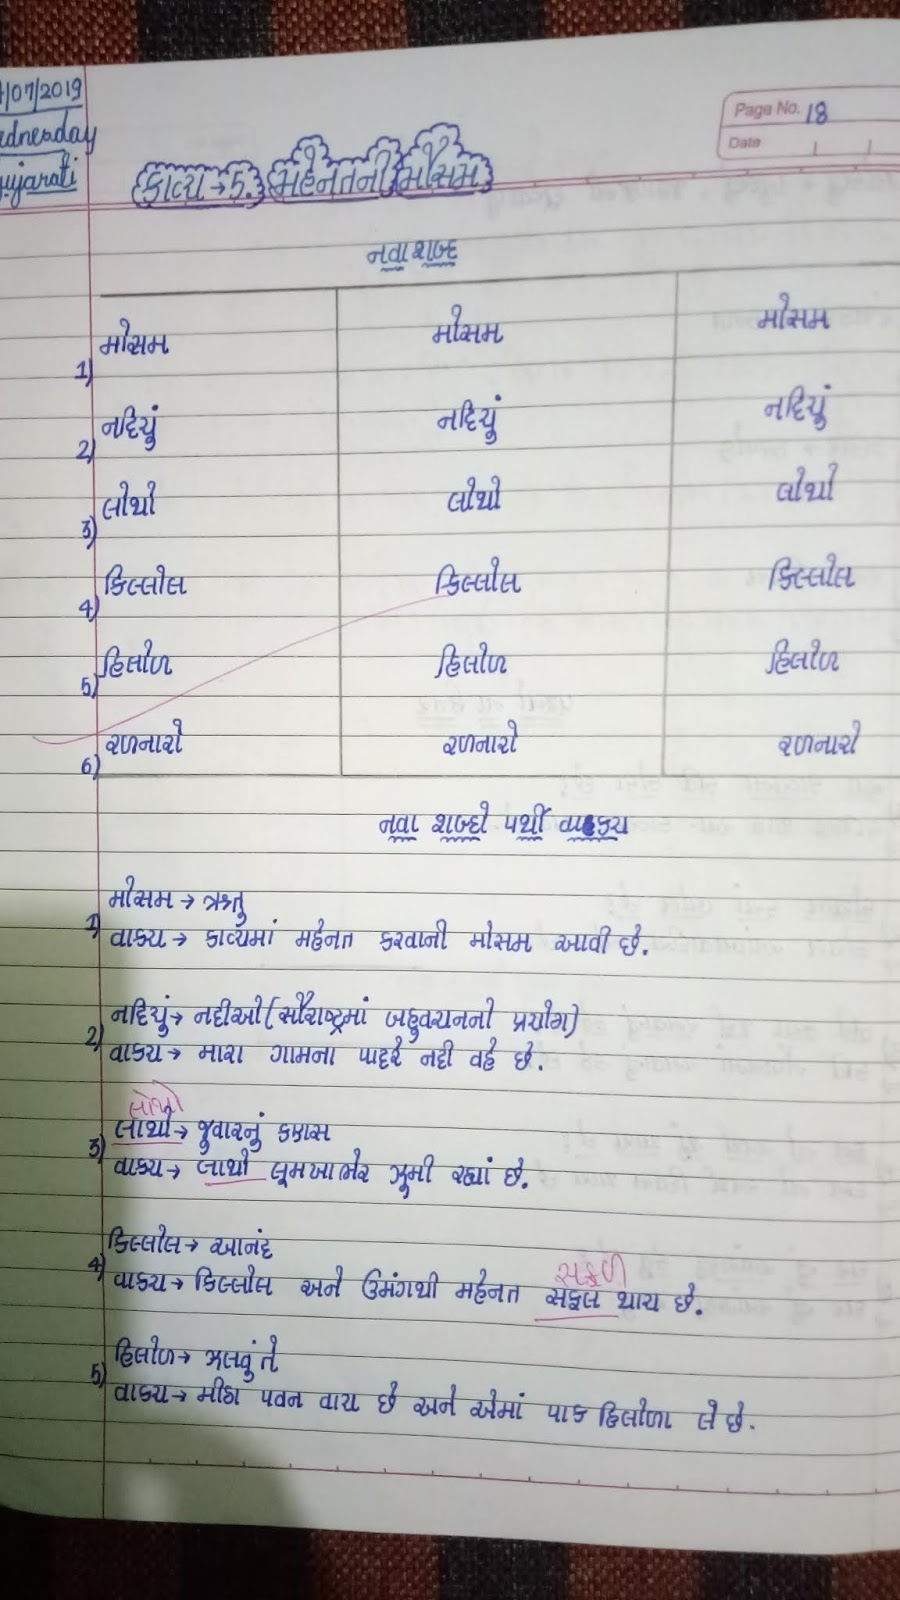 /07/2019
Page No. 18
Date
કાવ્ય → 5. મહેનતની મોસમ
નવા શબ્દ
1) મોસમ મોસમ મોસમ
2) નદિયું નદિયું નદિયું
3) લોથો લોથો લોથો
4) કિલ્લોલ કિલ્લોલ કિલ્લોલ
5) હિલોળ હિલોળ હિલોળ
6) રળનારો રળનારો રળનારો
નવા શબ્દો પરથી વાક્ય
1) મોસમ → ઋતુ
વાક્ય → કાવ્યમાં મહેનત કરવાની મોસમ આવી છે.
2) નદિયું → નદીઓ (સૌરાષ્ટ્રમાં બહુવચનનો પ્રયોગ)
વાક્ય → મારા ગામના પાદરે નદી વહે છે.
લોથો
3) લાથો → જુવારનું કણસ
વાક્ય → લાથો લૂમખાભેર ઝૂમી રહ્યાં છે.
4) કિલ્લોલ → આનંદ
સફળ
વાક્ય → કિલ્લોલ અને ઉમંગથી મહેનત સફલ થાય છે.
5) હિલોળ → ઝૂલવું તે
વાક્ય → મીઠો પવન વાય છે અને એમાં પાક હિલોળા લે છે.